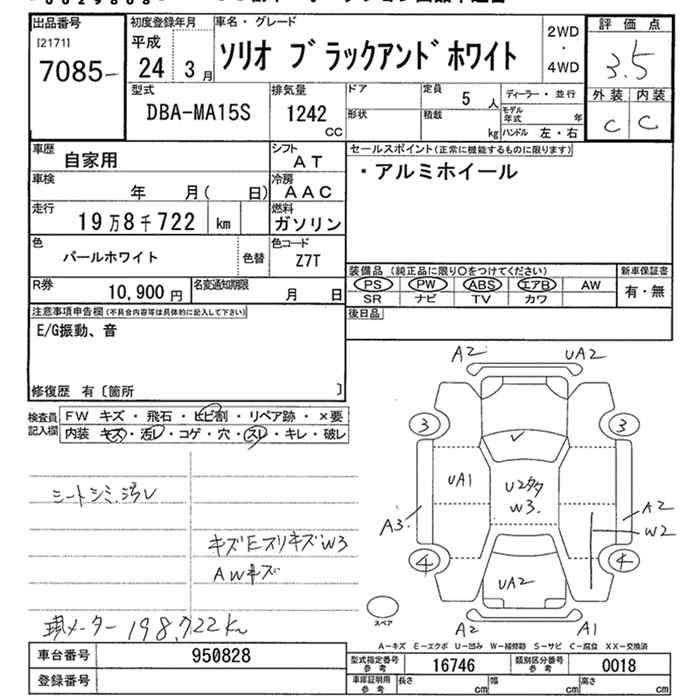 出品番号
[2171]
7085-
初度登録年月
平成
24 3月
車名・グレード
ソリオ ブラックアンドホワイト
2WD
・
4WD
評価点
3.5
外装 内装
C C
型式
DBA-MA15S
排気量
1242
CC
ドア
形状
定員
5人
積載
kg
ディーラー・並行
モデル年式 年
ハンドル 左・右
車歴
自家用
シフト
AT
セールスポイント(正常に機能するものに限ります)
・アルミホイール
車検
年 月( 日)
冷房
AAC
走行
19万8千722 km
燃料
ガソリン
色
パールホワイト
色替
色コード
Z7T
装備品 (純正品に限り○をつけてください)
PS PW ABS エアB AW
SR ナビ TV カワ
新車保証書
有・無
R券
10,900円
名変通知期限
月 日
後日品
注意事項申告欄(不具合内容等は具体的に記入して下さい)
E/G振動、音
修復歴 有〔箇所 〕
検査員記入欄
FW キズ・飛石・ヒビ割・リペア跡・×要
内装 キズ・汚レ・コゲ・穴・スレ・キレ・破レ
シートシミ、汚レ
キズEスリキズW3
AWキズ
現メーター 198,722km
A2 UA2
3 3
UA1
U2多タ
W3.
A3
A2
W2
4 4
UA2
スペア
A2 A1
A-キズ E-エクボ U-凹み W-補修跡 S-サビ C-腐食 XX-交換済
車台番号
950828
登録番号
型式指定番号
参考
16746
類別区分番号
参考
0018
車庫証明用
参考
長さ cm
幅 cm
高さ cm